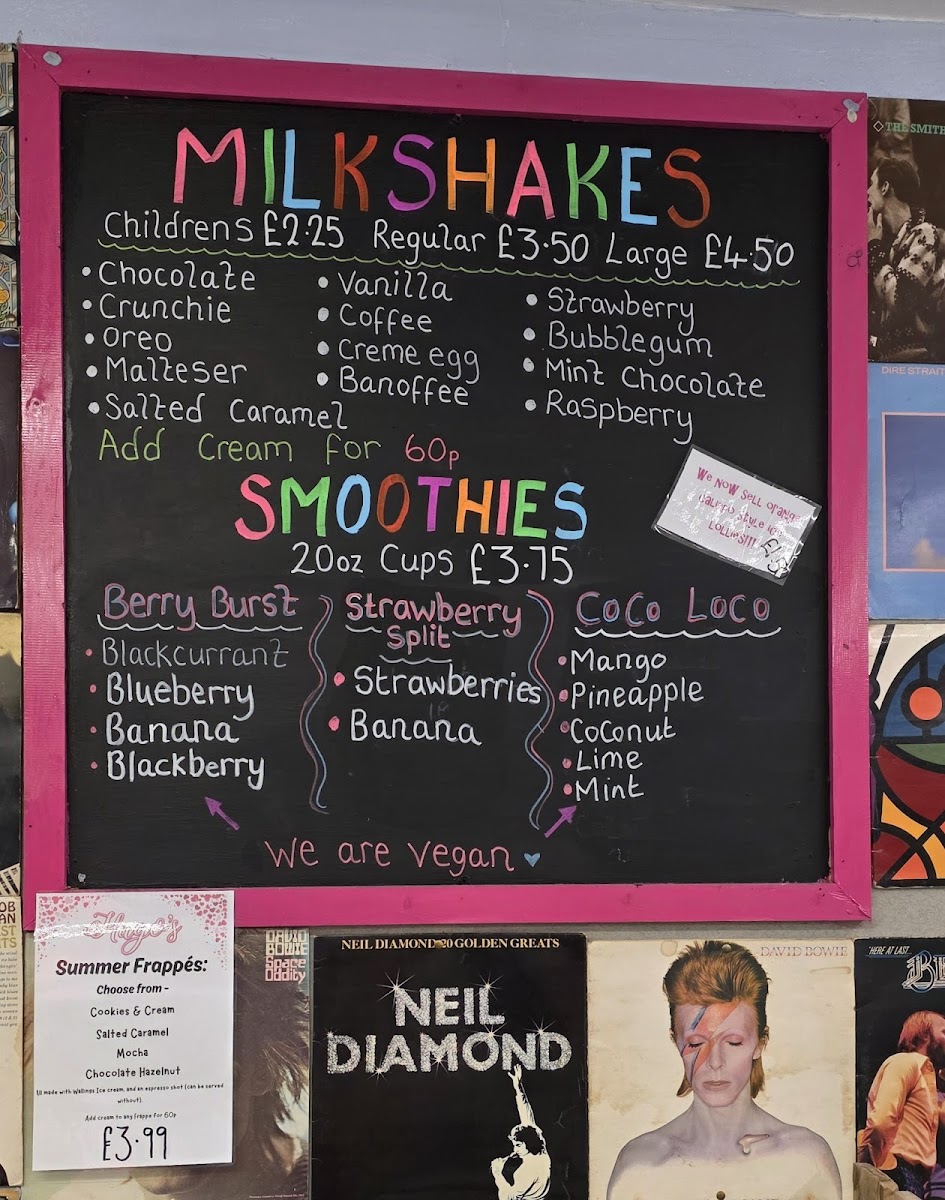 MILKSHAKES
Childrens £2.25 Regular £3.50 Large £4.50
• Chocolate
• Crunchie
• Oreo
• Malteser
• Salted Caramel
• Vanilla
• Coffee
• Creme egg
• Banoffee
• Strawberry
• Bubblegum
• Mint Chocolate
• Raspberry
Add Cream for 60p
We NOW Sell orange
style ice
LOLLIES!!!
SMOOTHIES
20oz Cups £3.75
Berry Burst
• Blackcurrant
• Blueberry
• Banana
• Blackberry
Strawberry
Split
• Strawberries
• Banana
CoCo Loco
• Mango
• Pineapple
• Coconut
• Lime
• Mint
We are vegan
Summer Frappés:
Choose from -
Cookies & Cream
Salted Caramel
Mocha
Chocolate Hazelnut
made with Wallings Ice cream, and an espresso shot (can be served
without).
Add cream to any frappe for 60p
£3.99
THE SMITH
DIRE STRAIT
DAVID
BOWIE
Space
Oddity
NEIL DIAMOND 20 GOLDEN GREATS
NEIL
DIAMOND
DAVID BOWIE
"HERE AT LAST